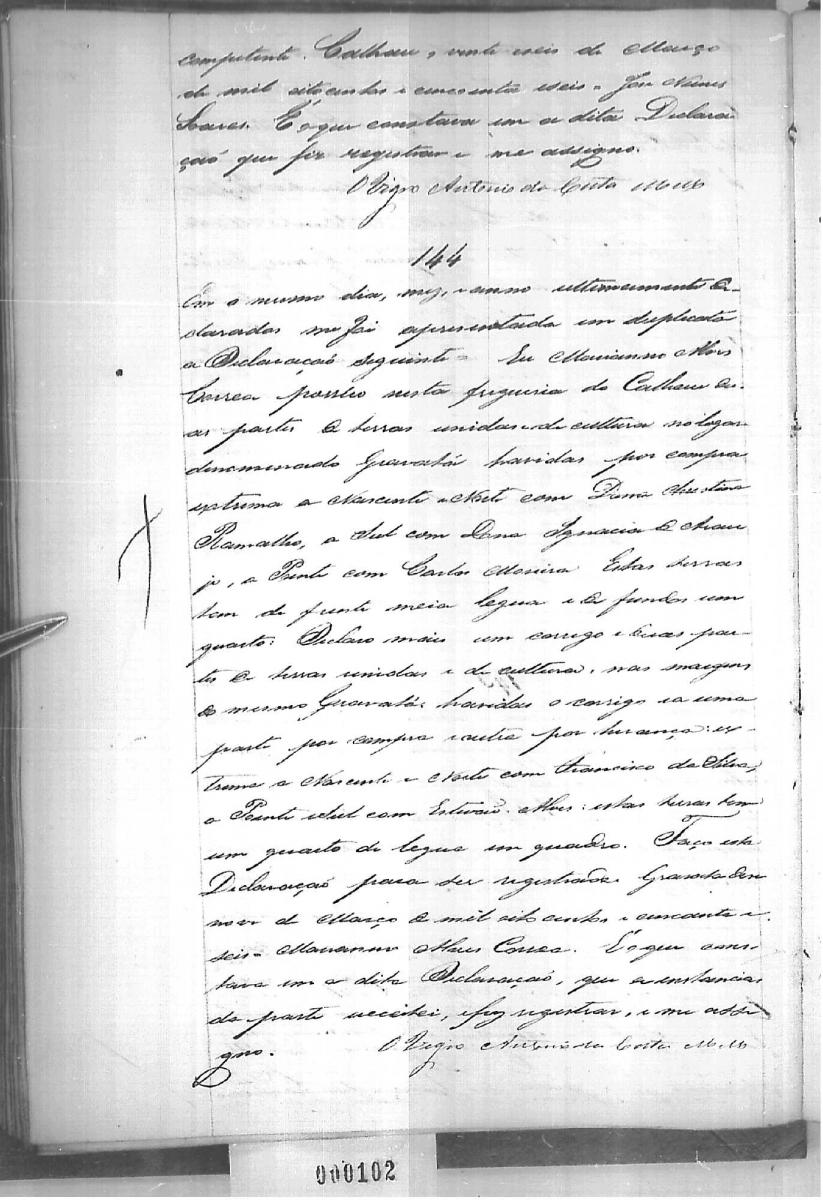 competente. Calhau, vinte e seis de Março
de mil oito centos e cincoenta e seis = José Nunes
Soares. E o que constava em a dita Declara
çaõ que fiz registrar e me assigno.
O Vigro Antonio da Costa Mello
144
Em o mesmo dia, mez, e anno ultimamente de-
clarados me foi apresentada em duplicata
a Declaraçaõ seguinte = Eu Marianno Alves
Correa possuo nesta freguesia do Calhau du-
as partes de terras unidas e de cultura no logar
denominado Gravatá havidas por compra
extrema a Nascente e Norte com Dona
Ramalho, a Sul com Dona Ignacia de Arau
jo, a Poente com Carlos Moreira Estas terras
tem de frente meia legua e de fundos um
quarto: Declaro mais um corrego e duas par-
tes de terras unidas e de cultura, nas margens
do mesmo Gravatá: havidas o corrego e a uma
parte por compra e outra por herança: ex-
trema a Nascente e Norte com Francisco da Silva,
a Poente e Sul com Estevaõ Alves: estas terras tem
um quarto de legua em quadro. Faço esta
Declaraçaõ para ser registrada. Gravatá dese
nove de Março de mil oito centos e cincoenta e
seis = Marianno Alves Correa. E o que cons-
tava em a dita Declaraçaõ, que a instancias
da parte acceitei, e fiz registrar, e me assi
gno. O Vigro Antonio da Costa Mello
000102